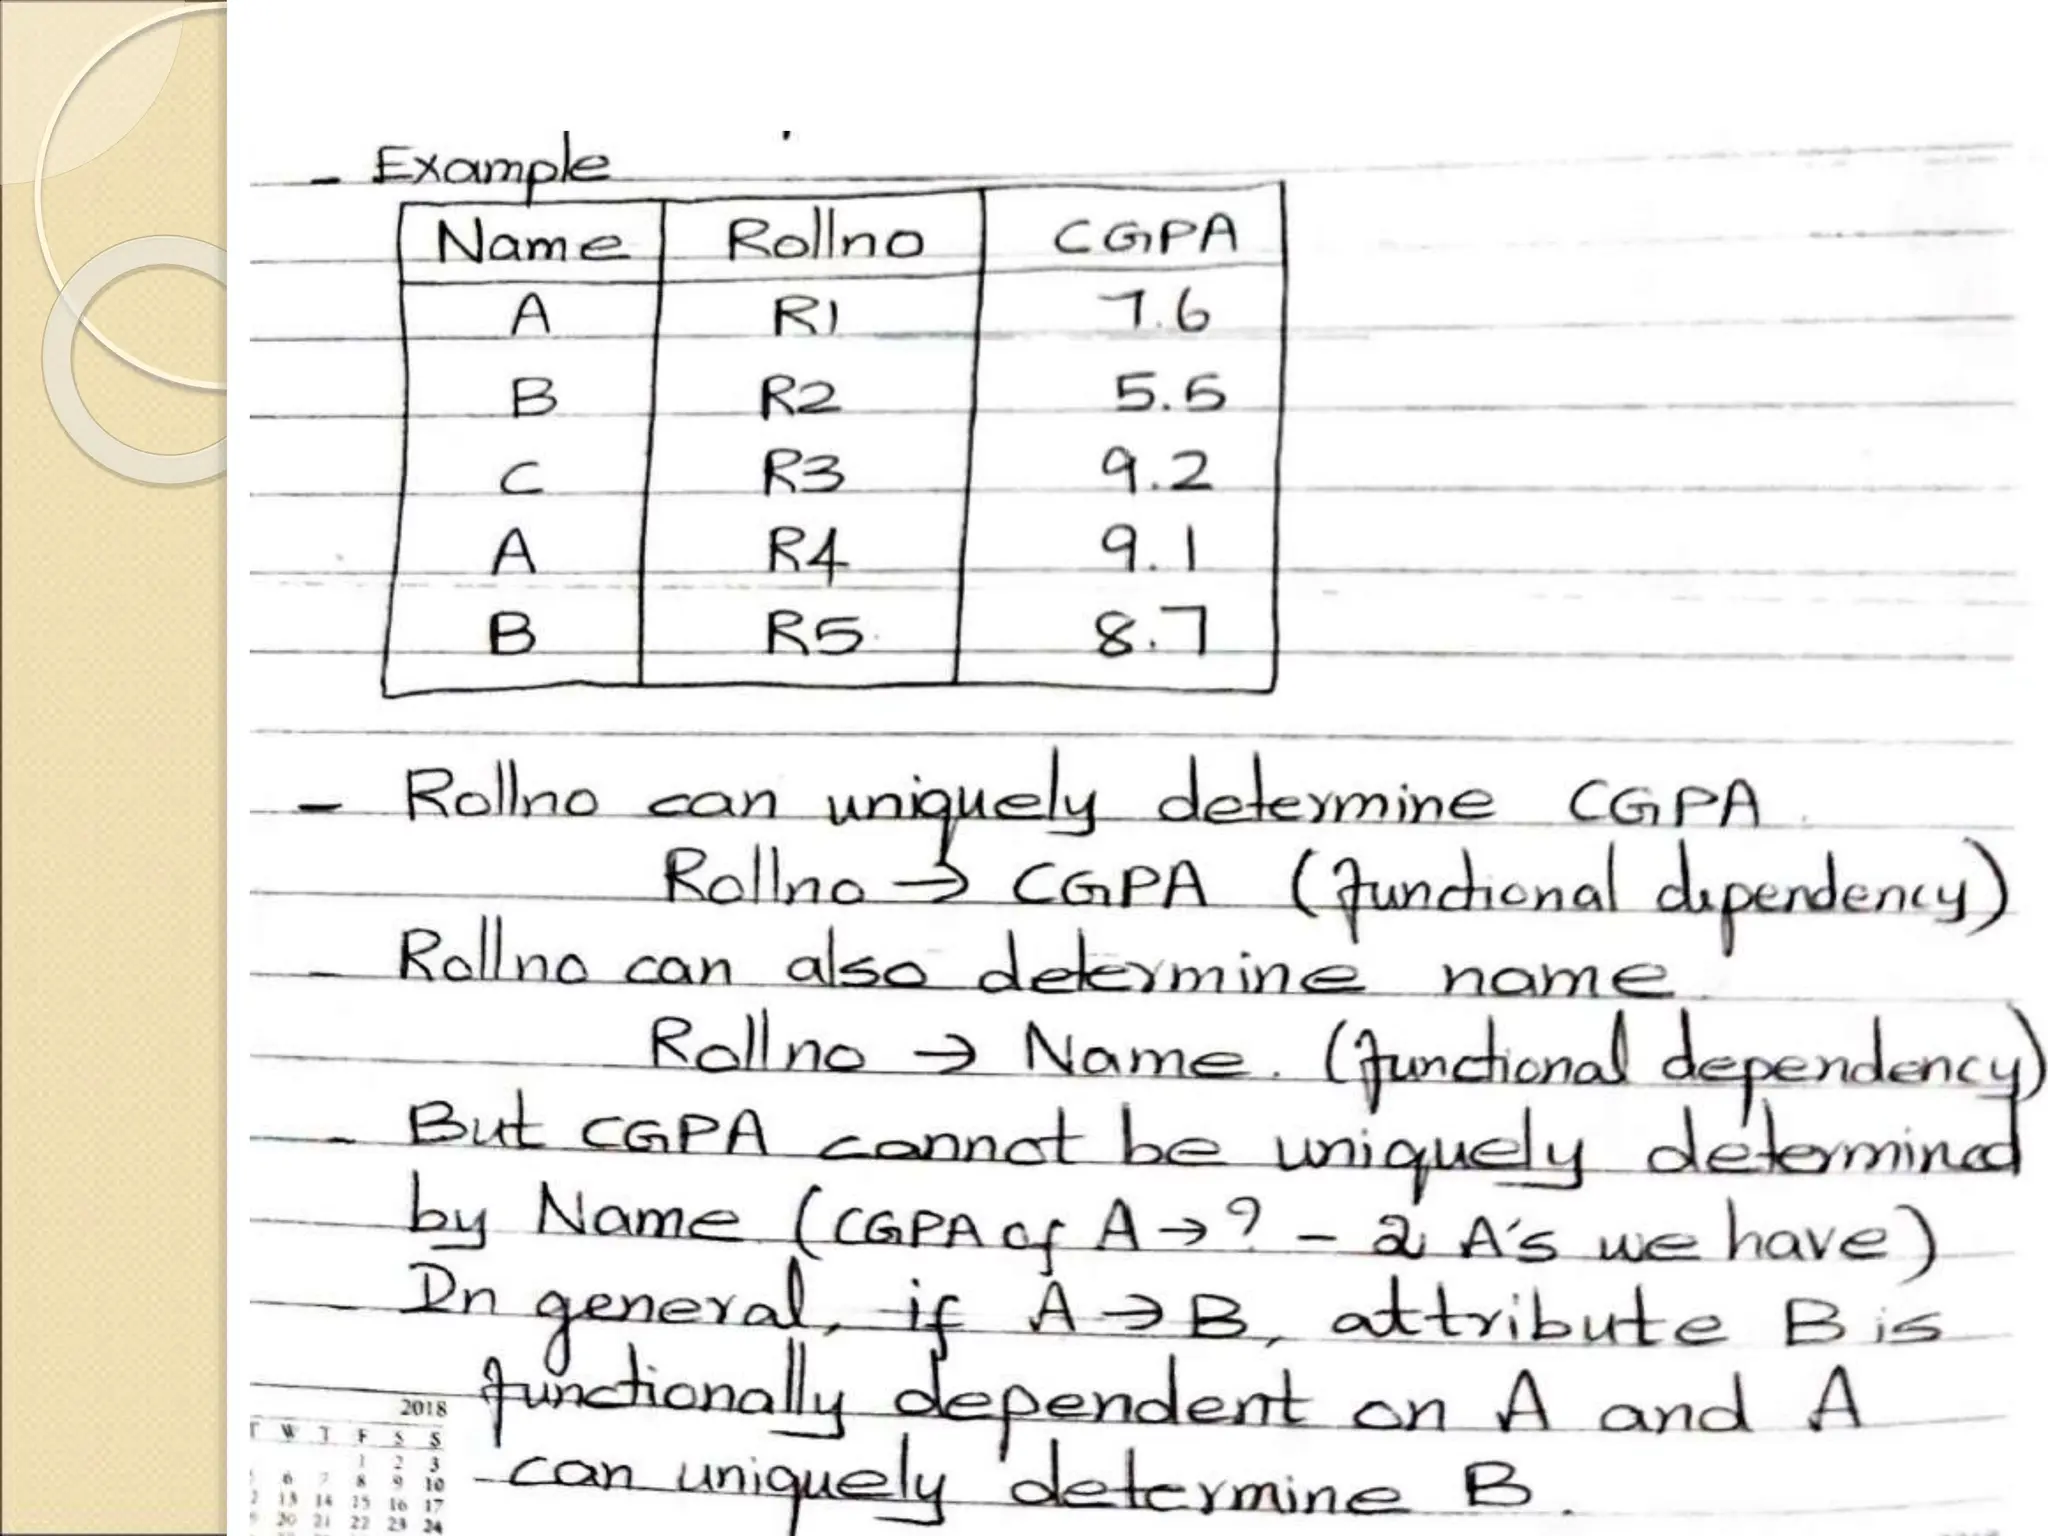 - Example
Name Rollno CGPA
A R1 7.6
B R2 5.5
C R3 9.2
A R4 9.1
B R5 8.7
- Rollno can uniquely determine CGPA.
Rollno → CGPA (functional dependency)
- Rollno can also determine name.
Rollno → Name. (functional dependency)
- But CGPA cannot be uniquely determined
by Name (CGPA of A → ? - 2 A's we have)
- In general, if A → B, attribute B is
functionally dependent on A and A
can uniquely determine B.
2018
T W T F S S
1 2 3
6 7 8 9 10
13 14 15 16 17
20 21 22 23 24